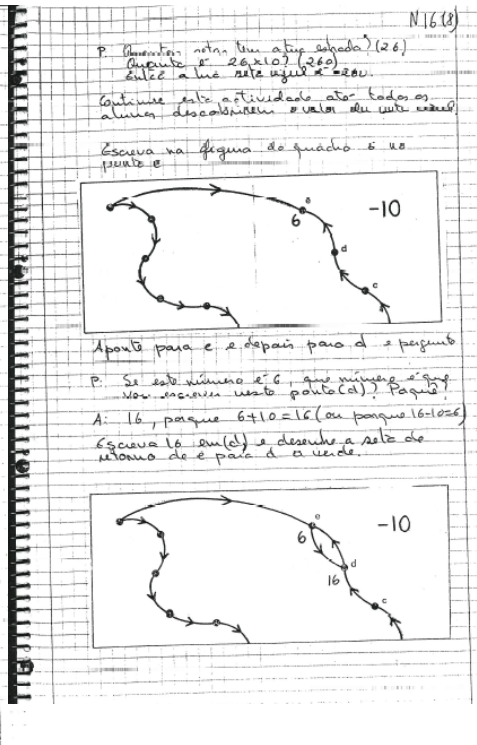 N16(8)
P. Quantas setas tem a tua estrada? (26)
Quanto é 26x10? (260)
Então a tua seta azul é -260.
Continue esta actividade até todos os
alunos descobrirem o valor da seta azul
Escreva na figura do quadro 6 no
ponto e
e
6
-10
d
c
Aponte para e e depois para d e pergunte
P. Se este número é 6, que número é que
vou escrever neste ponto (d)? Porquê?
A: 16, porque 6+10=16 (ou porque 16-10=6)
Escreva 16 em (d) e desenhe a seta de
retorno de e para d a verde.
e
6
-10
d
16
c